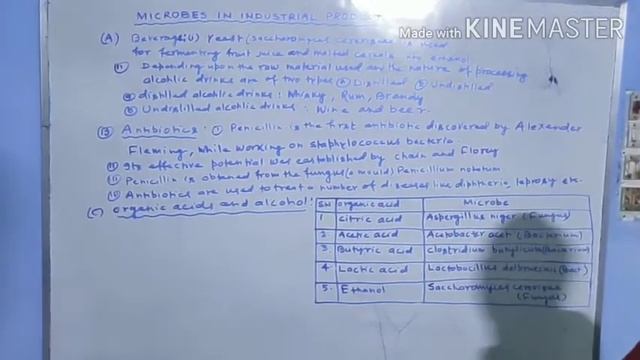 Made with KINEMASTER
MICROBES IN INDUSTRIAL PRODUCT
(A) Beverages (i) Yeast (Saccharomyces cerevisiae) is used
for fermenting fruit juice and malted cereals into ethanol
(ii) Depending upon the raw material used and the nature of processing
alcohlic drinks are of two types (a) Distilled (b) Undistilled
(a) distilled alcohlic drinks : Whisky, Rum, Brandy
(b) Undistilled alcohlic drinks : Wine and beer
(B) Antibiotics : (i) Penicillin is the first antibiotic discovered by Alexander
Fleming, while working on staphylococcus bacteria
(ii) Its effective potential was established by chain and Florey
(iii) Penicillin is obtained from the fungus (a mould) Penicillium notatum
(iv) Antibiotics are used to treat a number of diseases like diphtheria, leprosy etc.
(C) Organic acids and alcohol :
SN organic acid Microbe
1 Citric acid Aspergillus niger (Fungus)
2 Acetic acid Acetobacter aceti (Bacterium)
3 Butyric acid Clostridium butylicum (Bacterium)
4 Lactic acid Lactobacillus (Bact)
5. Ethanol Saccharomyces cerevisiae
(Fungus)